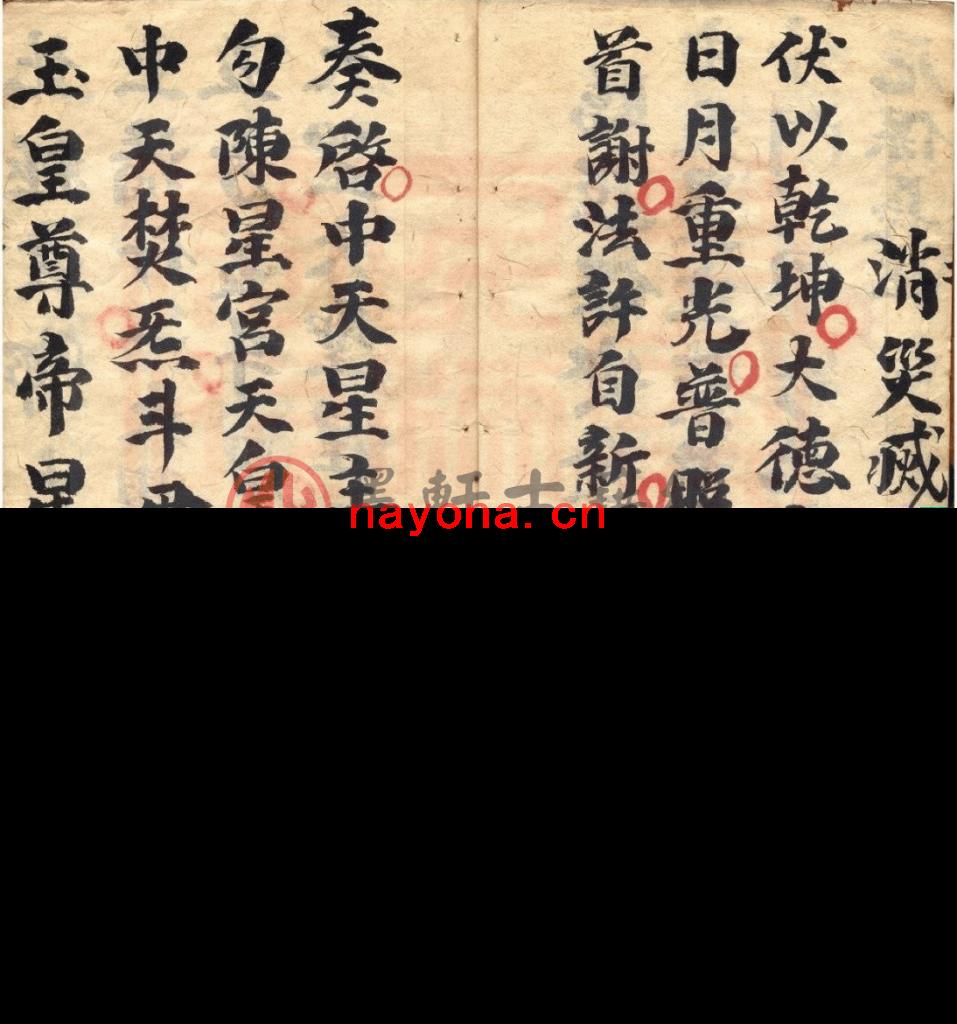 消災滅
伏以乾坤大德
日月重光普照
首謝法許自新
奏啓中天星主
勾陳星宮天皇
中天焚炁斗
玉皇尊帝星
nayona.cn